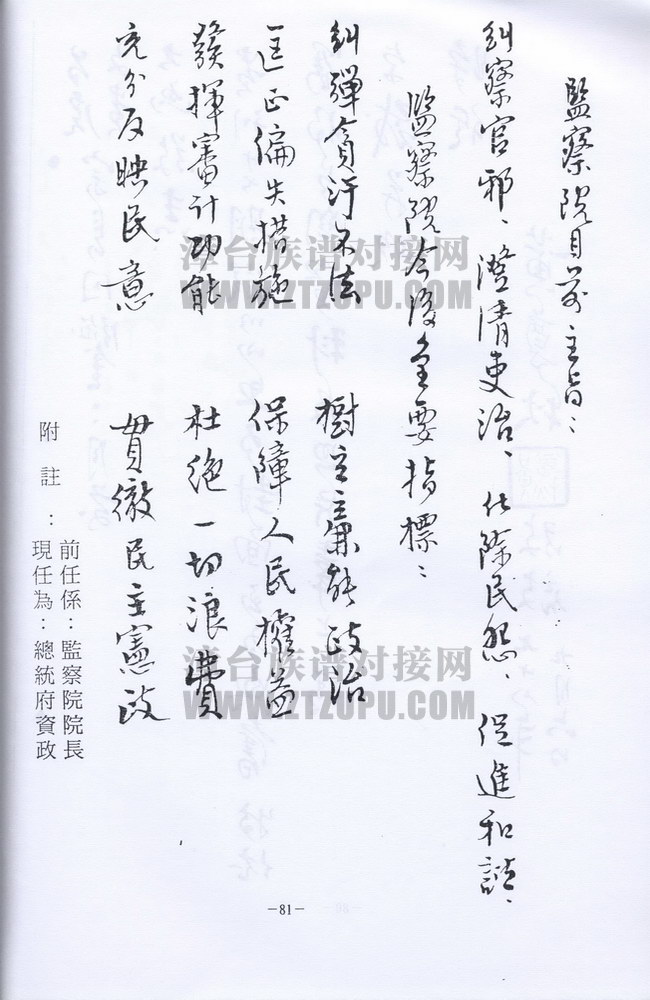 監察院目前主旨：
糾察官邪、澄清吏治、化除民怨、促進和諧、
監察院今後重要指標：
糾彈貪汙不法 樹立廉能政治
匡正偏失措施 保障人民權益
發揮審計功能 杜絕一切浪費
充分反映民意 貫徹民主憲政
附註：前任係：監察院院長
現任為：總統府資政
漳台族谱对接网
WWW.ZTZUPU.COM
漳台族谱对接网
WWW.ZTZUPU.COM
－81－